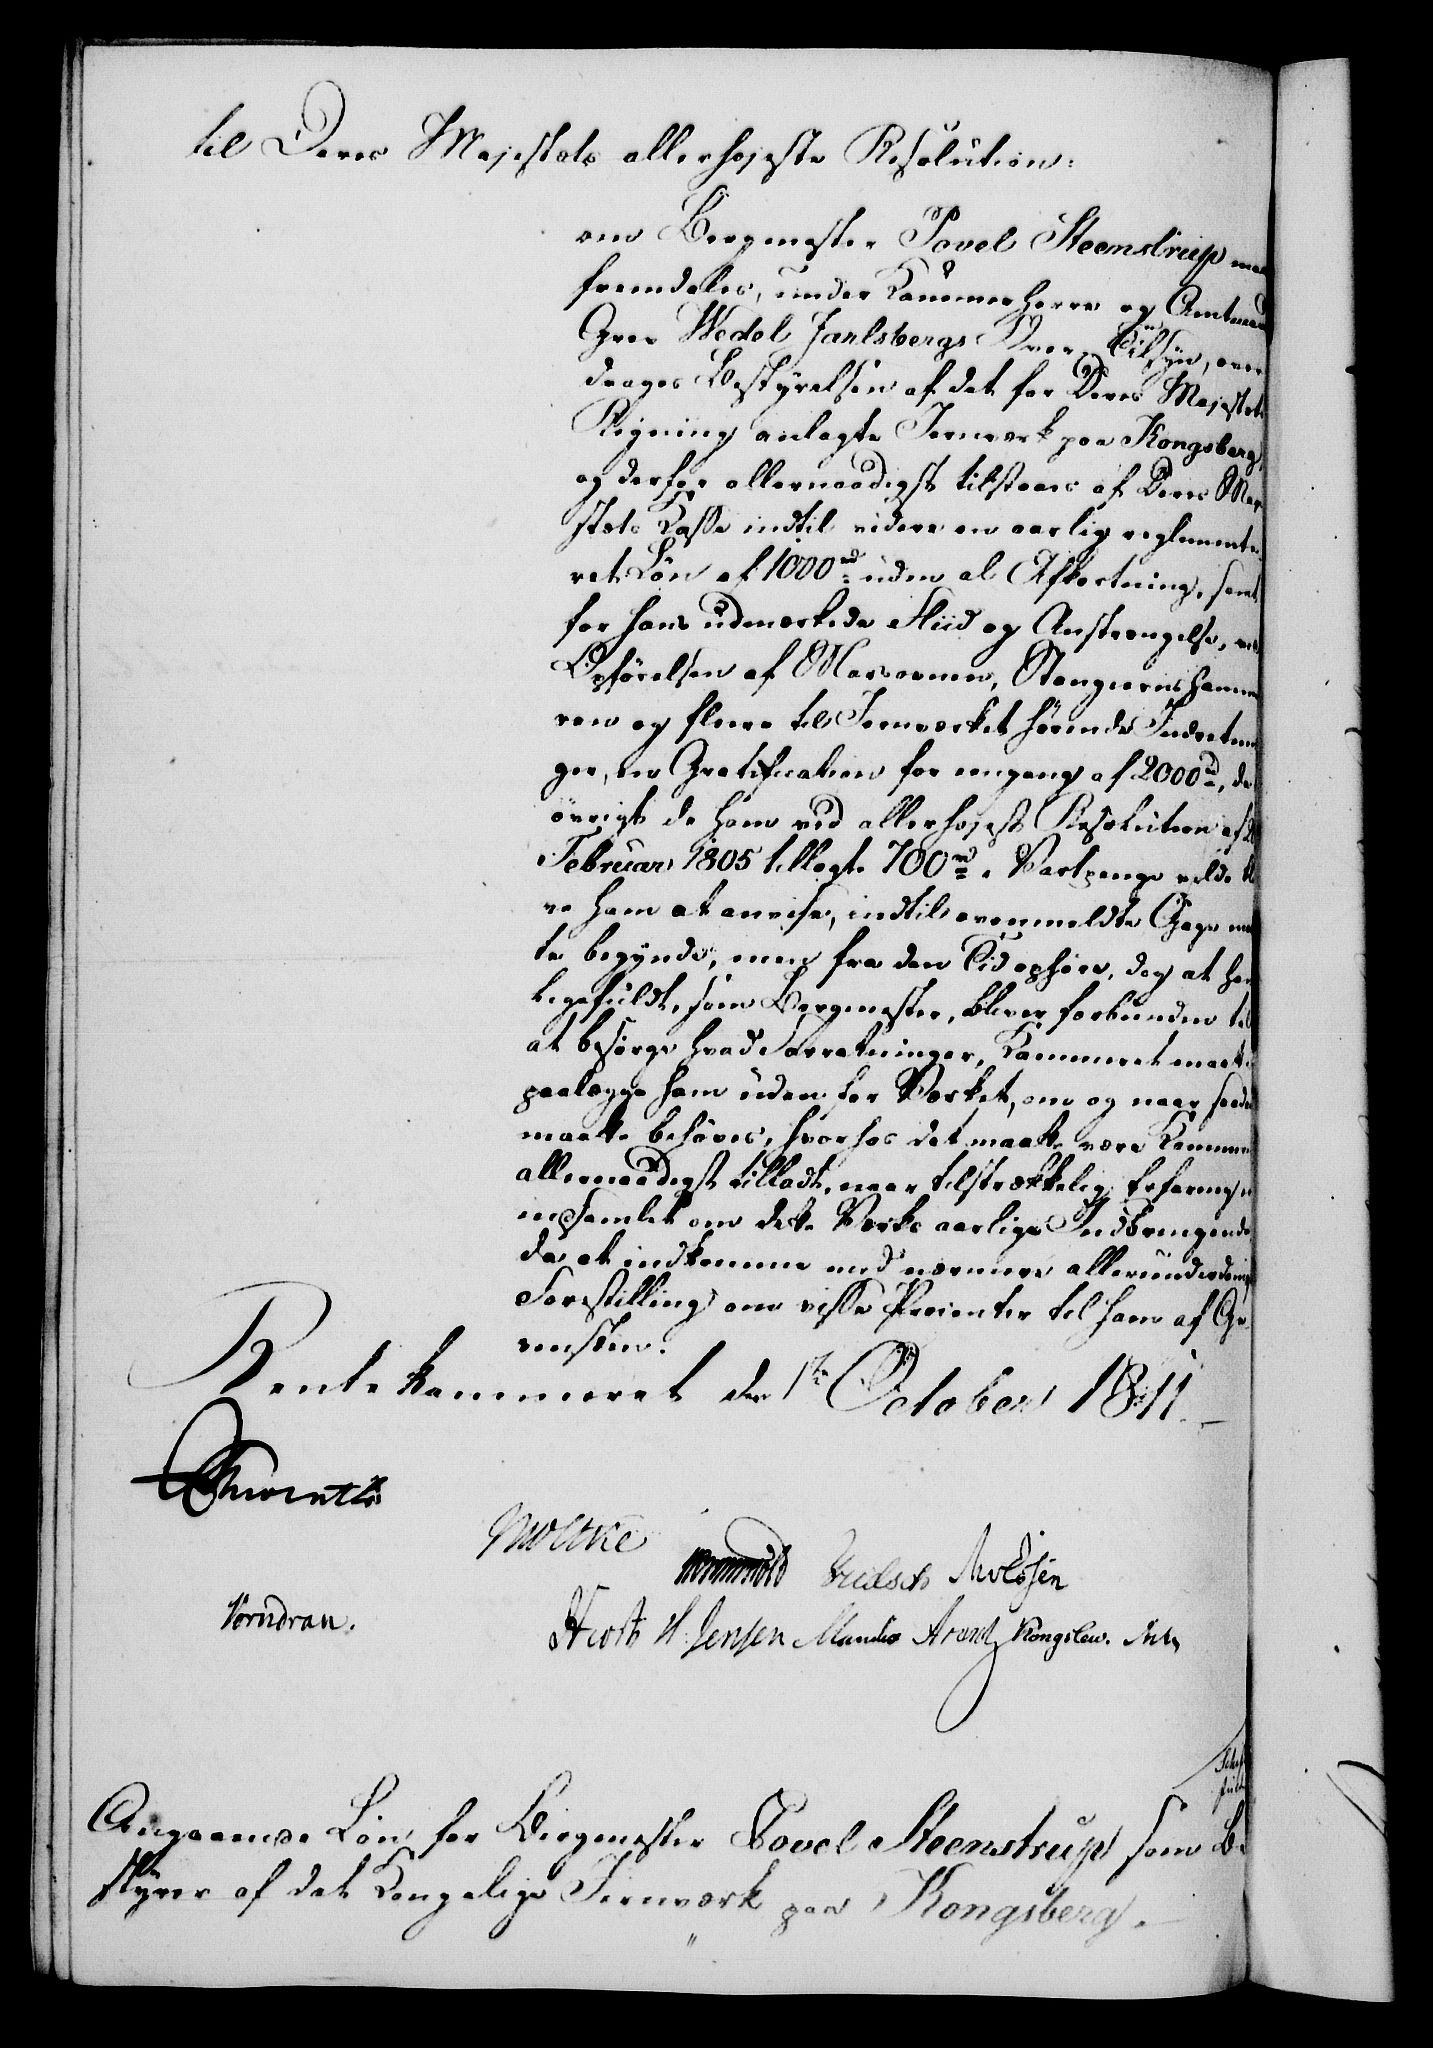 til Deres Majestæts allerhøjeste Resolution:
om Bergmester Povel Steenstrup maa
fremdeles, under Kammerherre og Amtmand
Grev Wedel Jarlsbergs Over-Tilsyn, over
drages Bestyrelsen af det for Deres Majestæts
Regning anlagte Jernværk paa Kongsberg,
og derfor allernaadigst tilstaaes af Deres Maj
stæts Kasse indtil videre en aarlig reglemente
ret Løn af 1000 rd uden al Afkortning, samt
for hans udmærkede Fliid og Anstrængelse, ved
Opførelsen af Masovnen, Stangjernshamme
ren og flere til Jernværket hørende Indretnin
ger, en Gratification for eengang af 2000 rd, da
øvrigt de ham ved allerhøjest Resolution af
Februar 1805 tillagte 700 rd Vartpenge vilde bli
ve ham at anvise, indtil ovenmeldte Gage maat
te begynde, men fra den Tid ophøre, dog at han
ligefuldt, som Bergmester, bliver forbunden til
at besørge hvad Forretninger, Kammeret maatte
paalægge ham uden for Værket, om og naar saadant
maatte behøves, hvorhos det maatte være Kammeret
allernaadigst tilladt, naar tilstrækkelig Erfaring er
indsamlet om dette Værks aarlige Indbringende
da at indkomme med nærmere allerunderdanigst
Forestilling om visse Procenter til ham af Ge
vinsten.
Rentekammeret den 1te October 1811.
Moltke
Vorndran.
H. Jensen Arentz Kongslew.
Angaaende Løn for Bergmester Povel Steenstrup som Be
styrer af det Kongelige Jernværk paa Kongsberg.